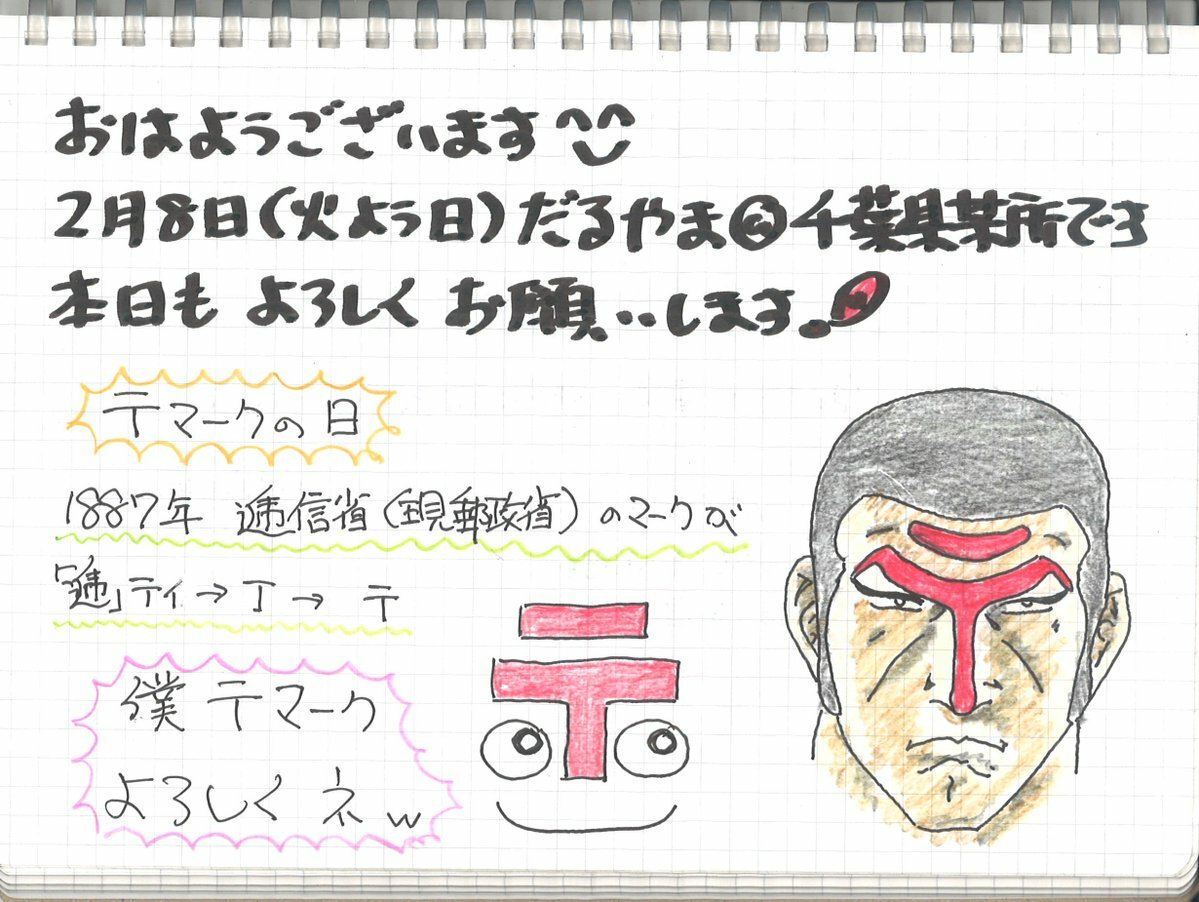 おはようございます^^
2月8日(火よう日)だるやま@千葉県某所です
本日も よろしく お願いします!
〒マークの日
1887年 逓信省(現郵政省)のマークが
「逓」テイ→丁→〒
僕〒マーク
よろしくネw